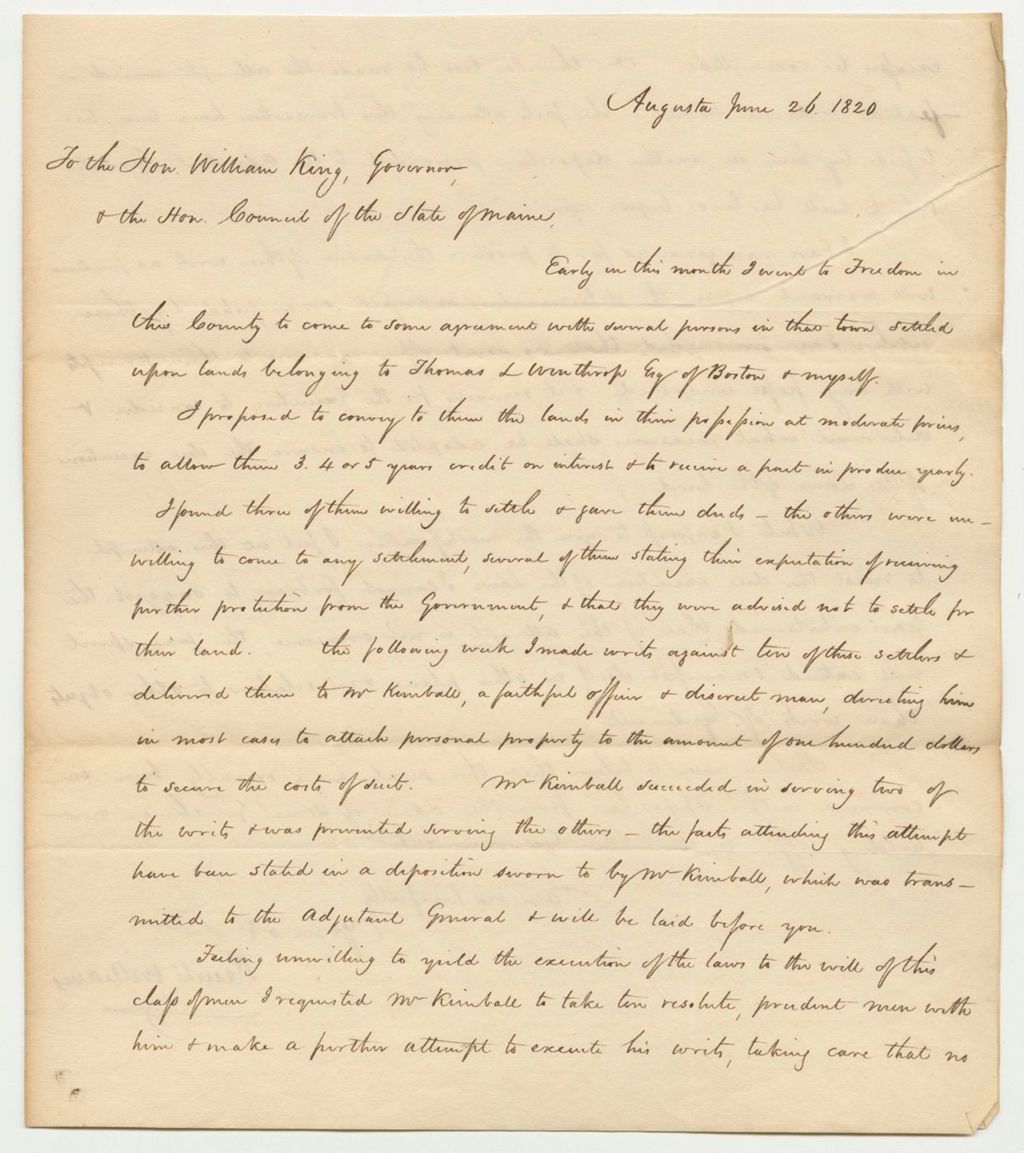 Augusta June 26. 1820
To the Hon. William King, Governor,
& the Hon. Council of the State of Maine,
Early in this month I went to Freedom in
this County to come to some agreement with several persons in that town settled
upon lands belonging to Thomas L Winthrop Esq of Boston & myself.
I proposed to convey to them the lands in their possession at moderate prices,
to allow them 3. 4 or 5 years credit on interest & to receive a part in produce yearly.
I found three of them willing to settle & gave them deeds — the others were un-
willing to come to any settlement, several of them stating their expectation of receiving
further protection from the Government, & that they were advised not to settle for
their land. The following week I made writs against ten of these settlers &
delivered them to Mr Kimball, a faithful officer & discreet man, directing him
in most cases to attach personal property to the amount of one hundred dollars
to secure the costs of suit. Mr Kimball succeeded in serving two of
the writs & was prevented serving the others — the facts attending this attempt
have been stated in a deposition sworn to by Mr Kimball, which was trans-
mitted to the Adjutant General & will be laid before you.
Feeling unwilling to yield the execution of the laws to the will of this
class of men I requested Mr Kimball to take ten resolute, prudent men with
him & make a further attempt to execute his writs, taking care that no